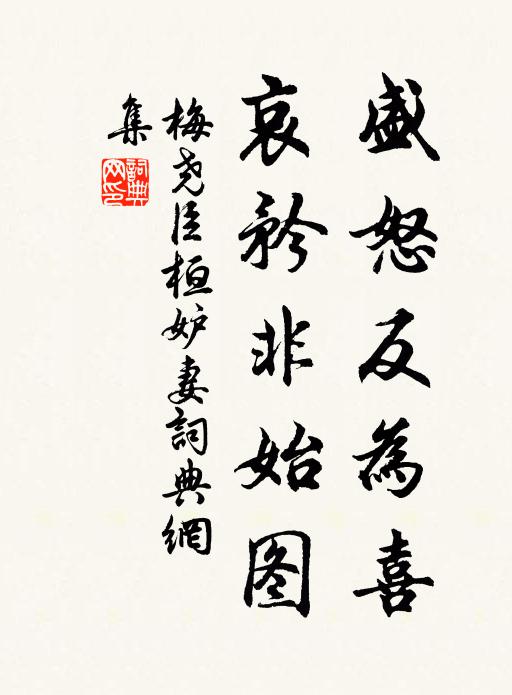 盛怒反為喜
哀矜非始图
梅尧臣桓妒妻詞典網
集
詞典
网印